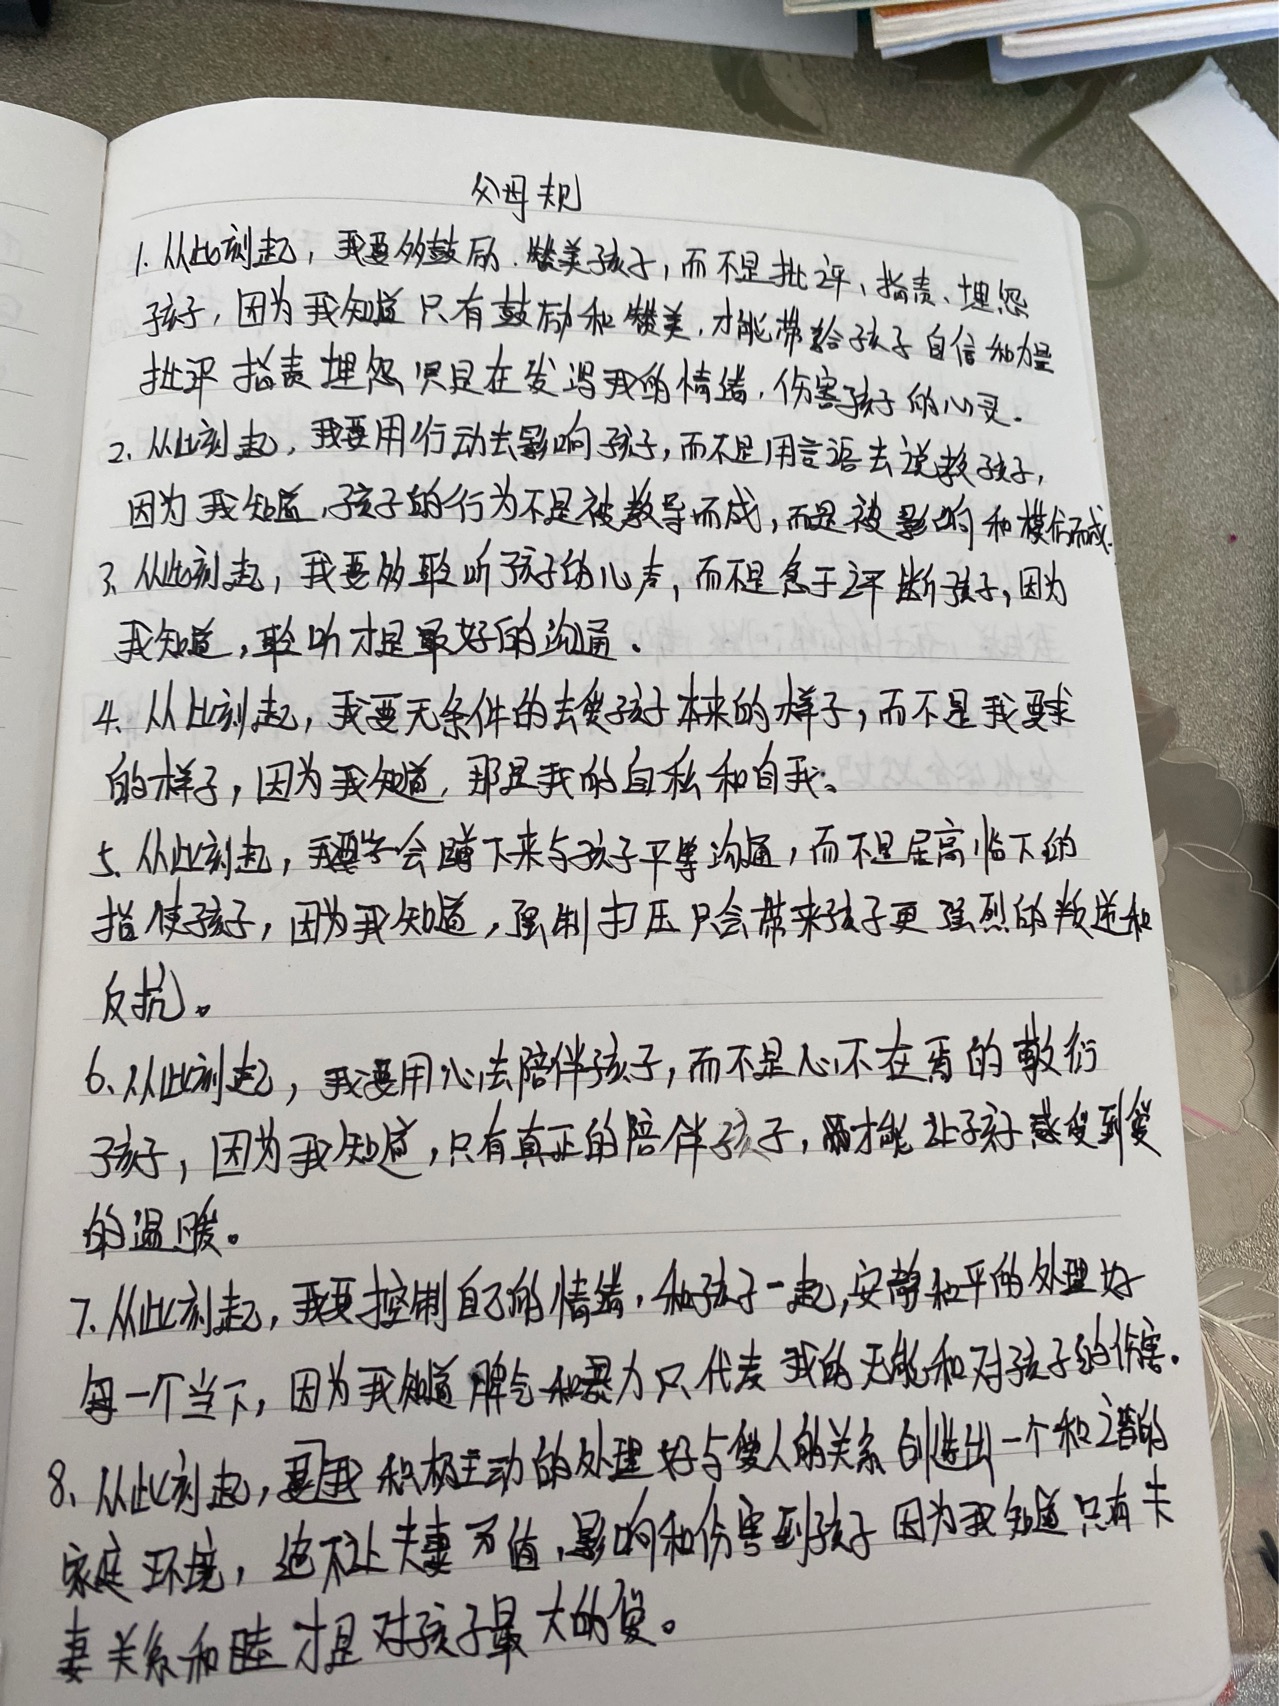 父母规
1. 从此刻起，我要多鼓励、赞美孩子，而不是批评、指责、埋怨
孩子，因为我知道只有鼓励和赞美，才能带给孩子自信和力量
批评 指责 埋怨 只是在发泻我的情绪，伤害孩子的心灵。
2. 从此刻起，我要用行动去影响孩子，而不是用言语去说教孩子，
因为我知道，孩子的行为不是被教导而成，而是被影响和模仿而成
3. 从此刻起，我要多聆听孩子的心声，而不是急于评断孩子，因为
我知道，聆听才是最好的沟通。
4. 从此刻起，我要无条件的去爱孩子本来的样子，而不是我要求
的样子，因为我知道，那是我的自私和自我。
5. 从此刻起，我要学会蹲下来与孩子平等沟通，而不是居高临下的
指使孩子，因为我知道，强制打压只会带来孩子更强烈的叛逆和
反抗。
6. 从此刻起，我要用心去陪伴孩子，而不是心不在焉的敷衍
孩子，因为我知道，只有真正的陪伴孩子，才能让孩子感受到爱
的温暖。
7. 从此刻起，我要控制自己的情绪，和孩子一起，安静和平的处理好
每一个当下，因为我知道脾气和暴力只代表我的无能和对孩子的伤害。
8. 从此刻起，要我积极主动的处理好与爱人的关系创造出一个和谐的
家庭环境，绝不让夫妻 影响和伤害到孩子 因为我知道只有夫
妻关系和睦才是对孩子最大的爱。